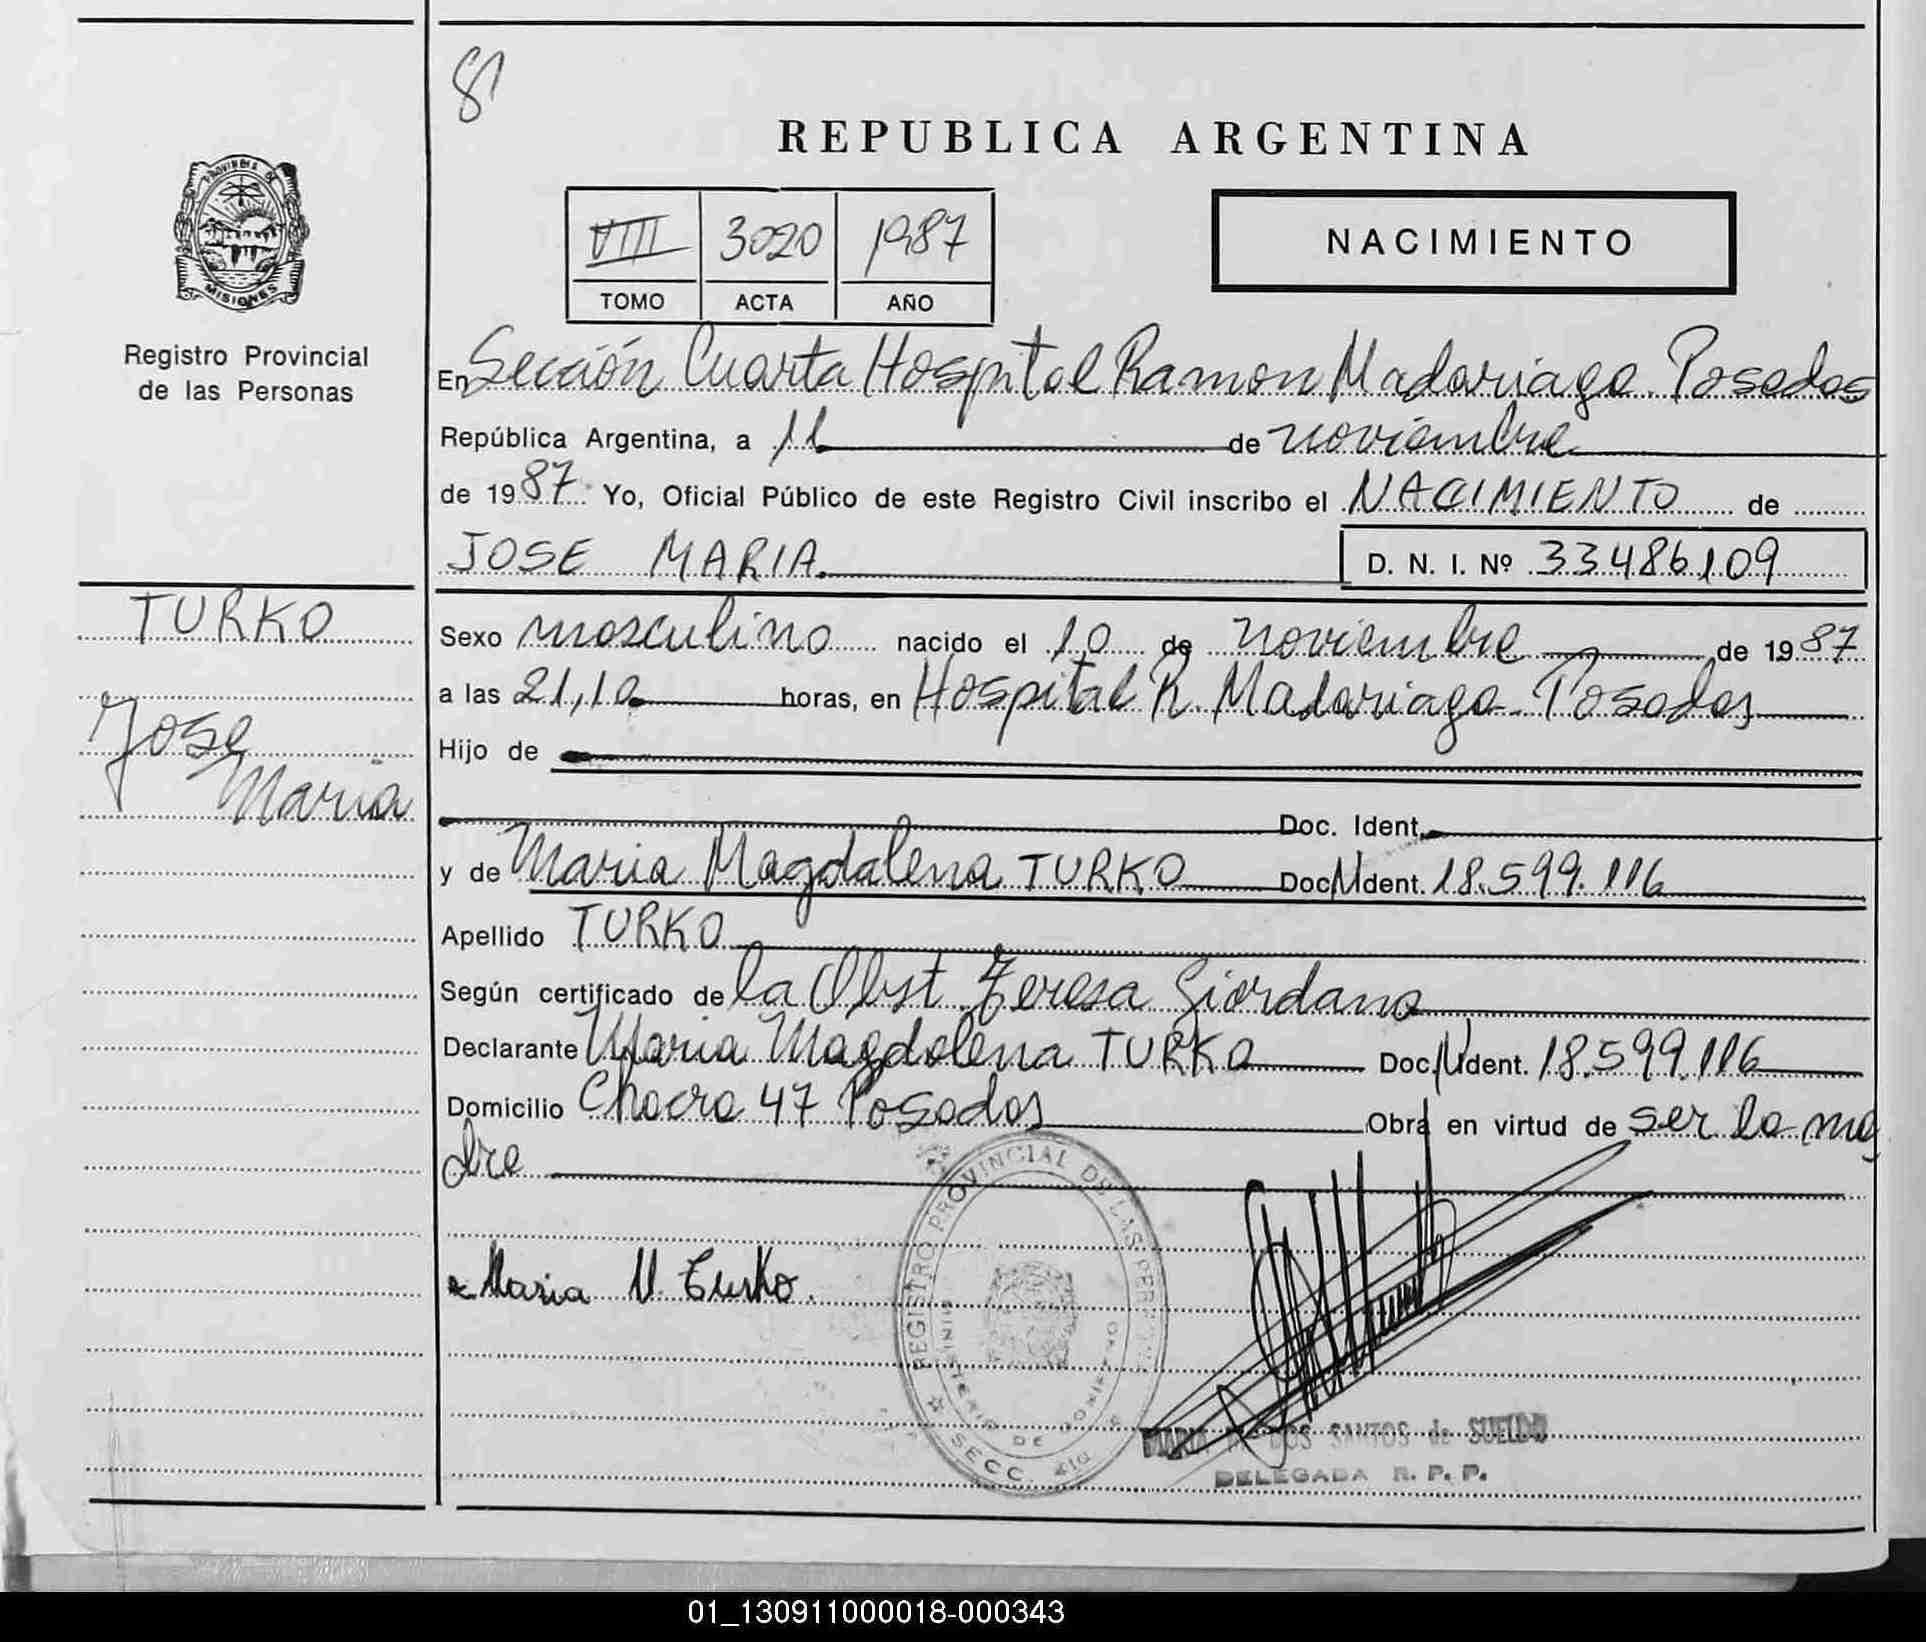 81
REPUBLICA ARGENTINA
PROVINCIA DE
MISIONES
Registro Provincial
de las Personas
VIII 3020 1987
TOMO ACTA AÑO
NACIMIENTO
En Sección Cuarta Hospital Ramon Madariaga. Posadas
República Argentina, a 11 de noviembre
de 1987. Yo, Oficial Público de este Registro Civil inscribo el NACIMIENTO de
JOSE MARIA. D. N. I. Nº 33486109
TURKO
Jose
Maria
Sexo masculino nacido el 10 de noviembre de 1987
a las 21,10 horas, en Hospital R. Madariaga - Posadas
Hijo de
Doc. Ident.
y de Maria Magdalena TURKO Doc. Ident. 18.599.116
Apellido TURKO
Según certificado de la Obst. Teresa Giordano
Declarante Maria Magdalena TURKO Doc. Ident. 18.599.116
Domicilio Chacra 47 Posadas Obra en virtud de ser la ma
dre
Maria M. Turko.
REGISTRO PROVINCIAL DE LAS PERSONAS
MINISTERIO DE GOBIERNO
SECC. 4ta
MARIA DOS SANTOS de SUELDO
DELEGADA R. P. P.
01_130911000018-000343